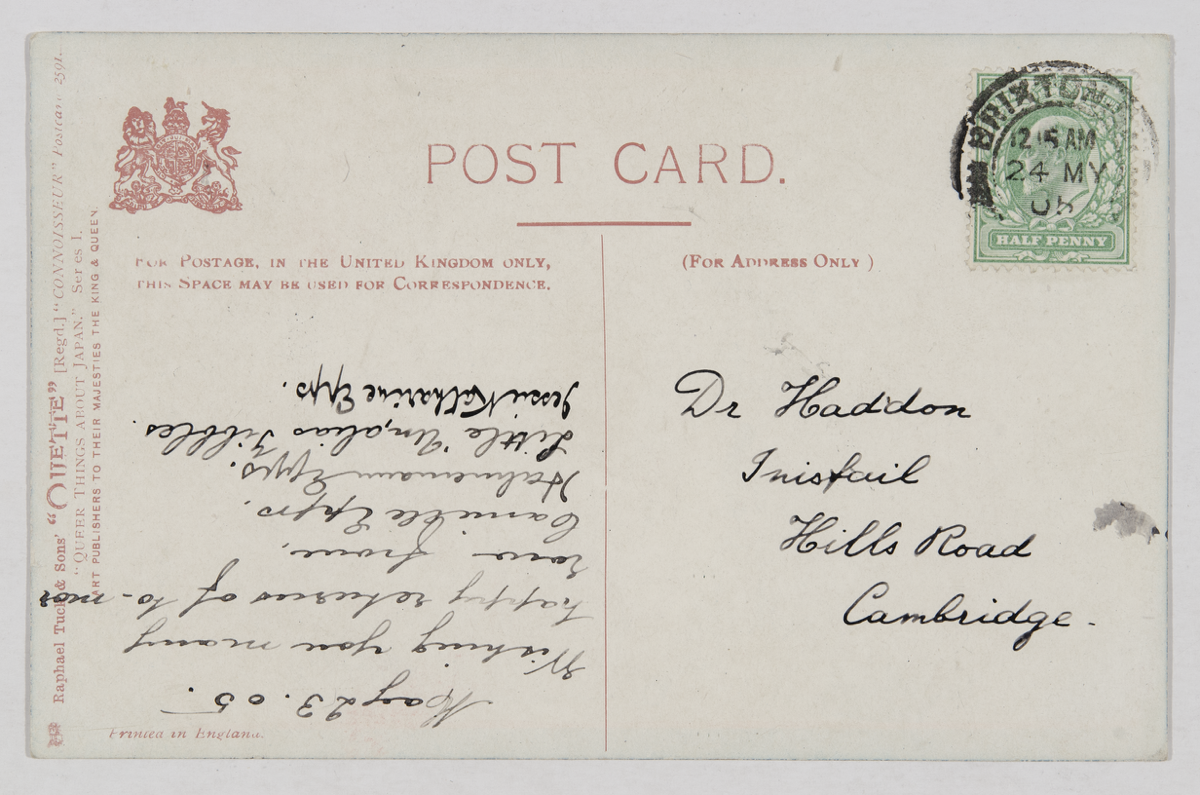 POST CARD.
FOR POSTAGE, IN THE UNITED KINGDOM ONLY,
THIS SPACE MAY BE USED FOR CORRESPONDENCE.
(FOR ADDRESS ONLY)
BRIXTON
12.15 AM
24 MY
05
HALF PENNY
Dr Haddon
Inisfail
Hills Road
Cambridge.
May 23.05.
Wishing you many
happy returns of to-mor
row from,
Camille Epps.
Hahnemann Epps.
Little 'Un, alias Tibbles.
Jessie Katharine Epps.
Raphael Tuck & Sons' "OILETTE" [Regd.] "CONNOISSEUR" Postcard 2591.
"QUEER THINGS ABOUT JAPAN." Series I.
ART PUBLISHERS TO THEIR MAJESTIES THE KING & QUEEN.
Printed in England.